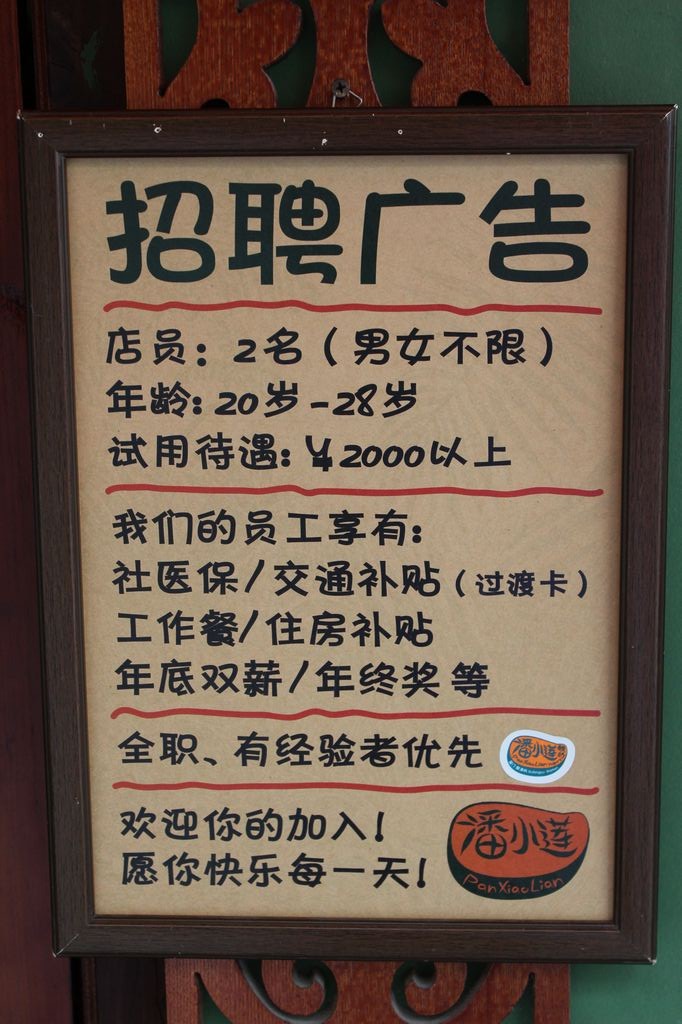 招聘广告
店员：2名（男女不限）
年龄：20岁-28岁
试用待遇：¥2000以上
我们的员工享有：
社医保/交通补贴（过渡卡）
工作餐/住房补贴
年底双薪/年终奖等
全职、有经验者优先
潘小莲
欢迎你的加入！
愿你快乐每一天！
潘小莲
PanXiaoLian